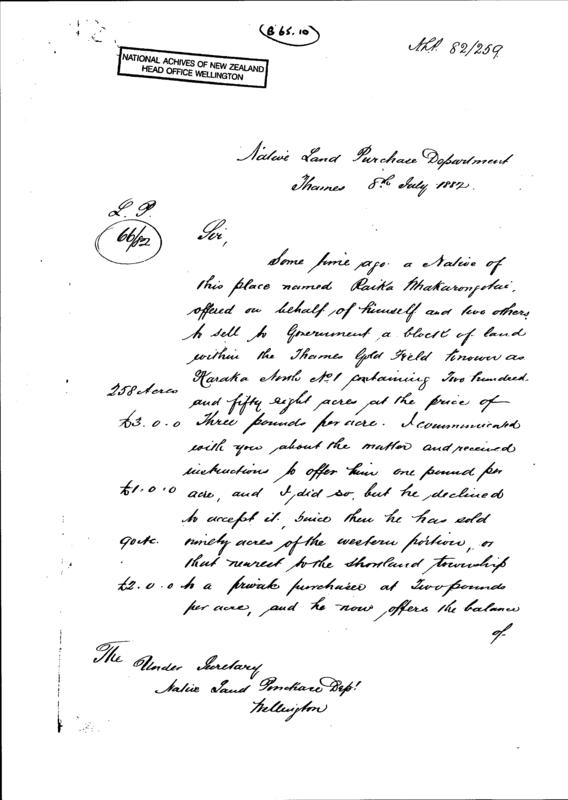 (B 65.10)
NLP. 82/259
NATIONAL ACHIVES OF NEW ZEALAND
HEAD OFFICE WELLINGTON
Native Land Purchase Department
Thames 8th July 1882.
L. P.
66/82
Sir,
Some time ago a Native of
this place named Raika Whakarongotai,
offered on behalf of himself and two others
to sell to Government a block of land
within the Thames Gold Field known as
Karaka North No 1 containing Two hundred
258 Acres and fifty eight acres at the price of
£3.0.0 Three pounds per acre. I communicated
with you about the matter and received
instructions to offer him one pound per
£1.0.0 acre, and I did so, but he declined
to accept it, since then he has sold
90 Ac. ninety acres of the western portion, or
that nearest to the Shortland township
£2.0.0 to a private purchaser at Two pounds
per acre, and he now offers the balance
of
The Under Secretary
Native Land Purchase Dept
Wellington